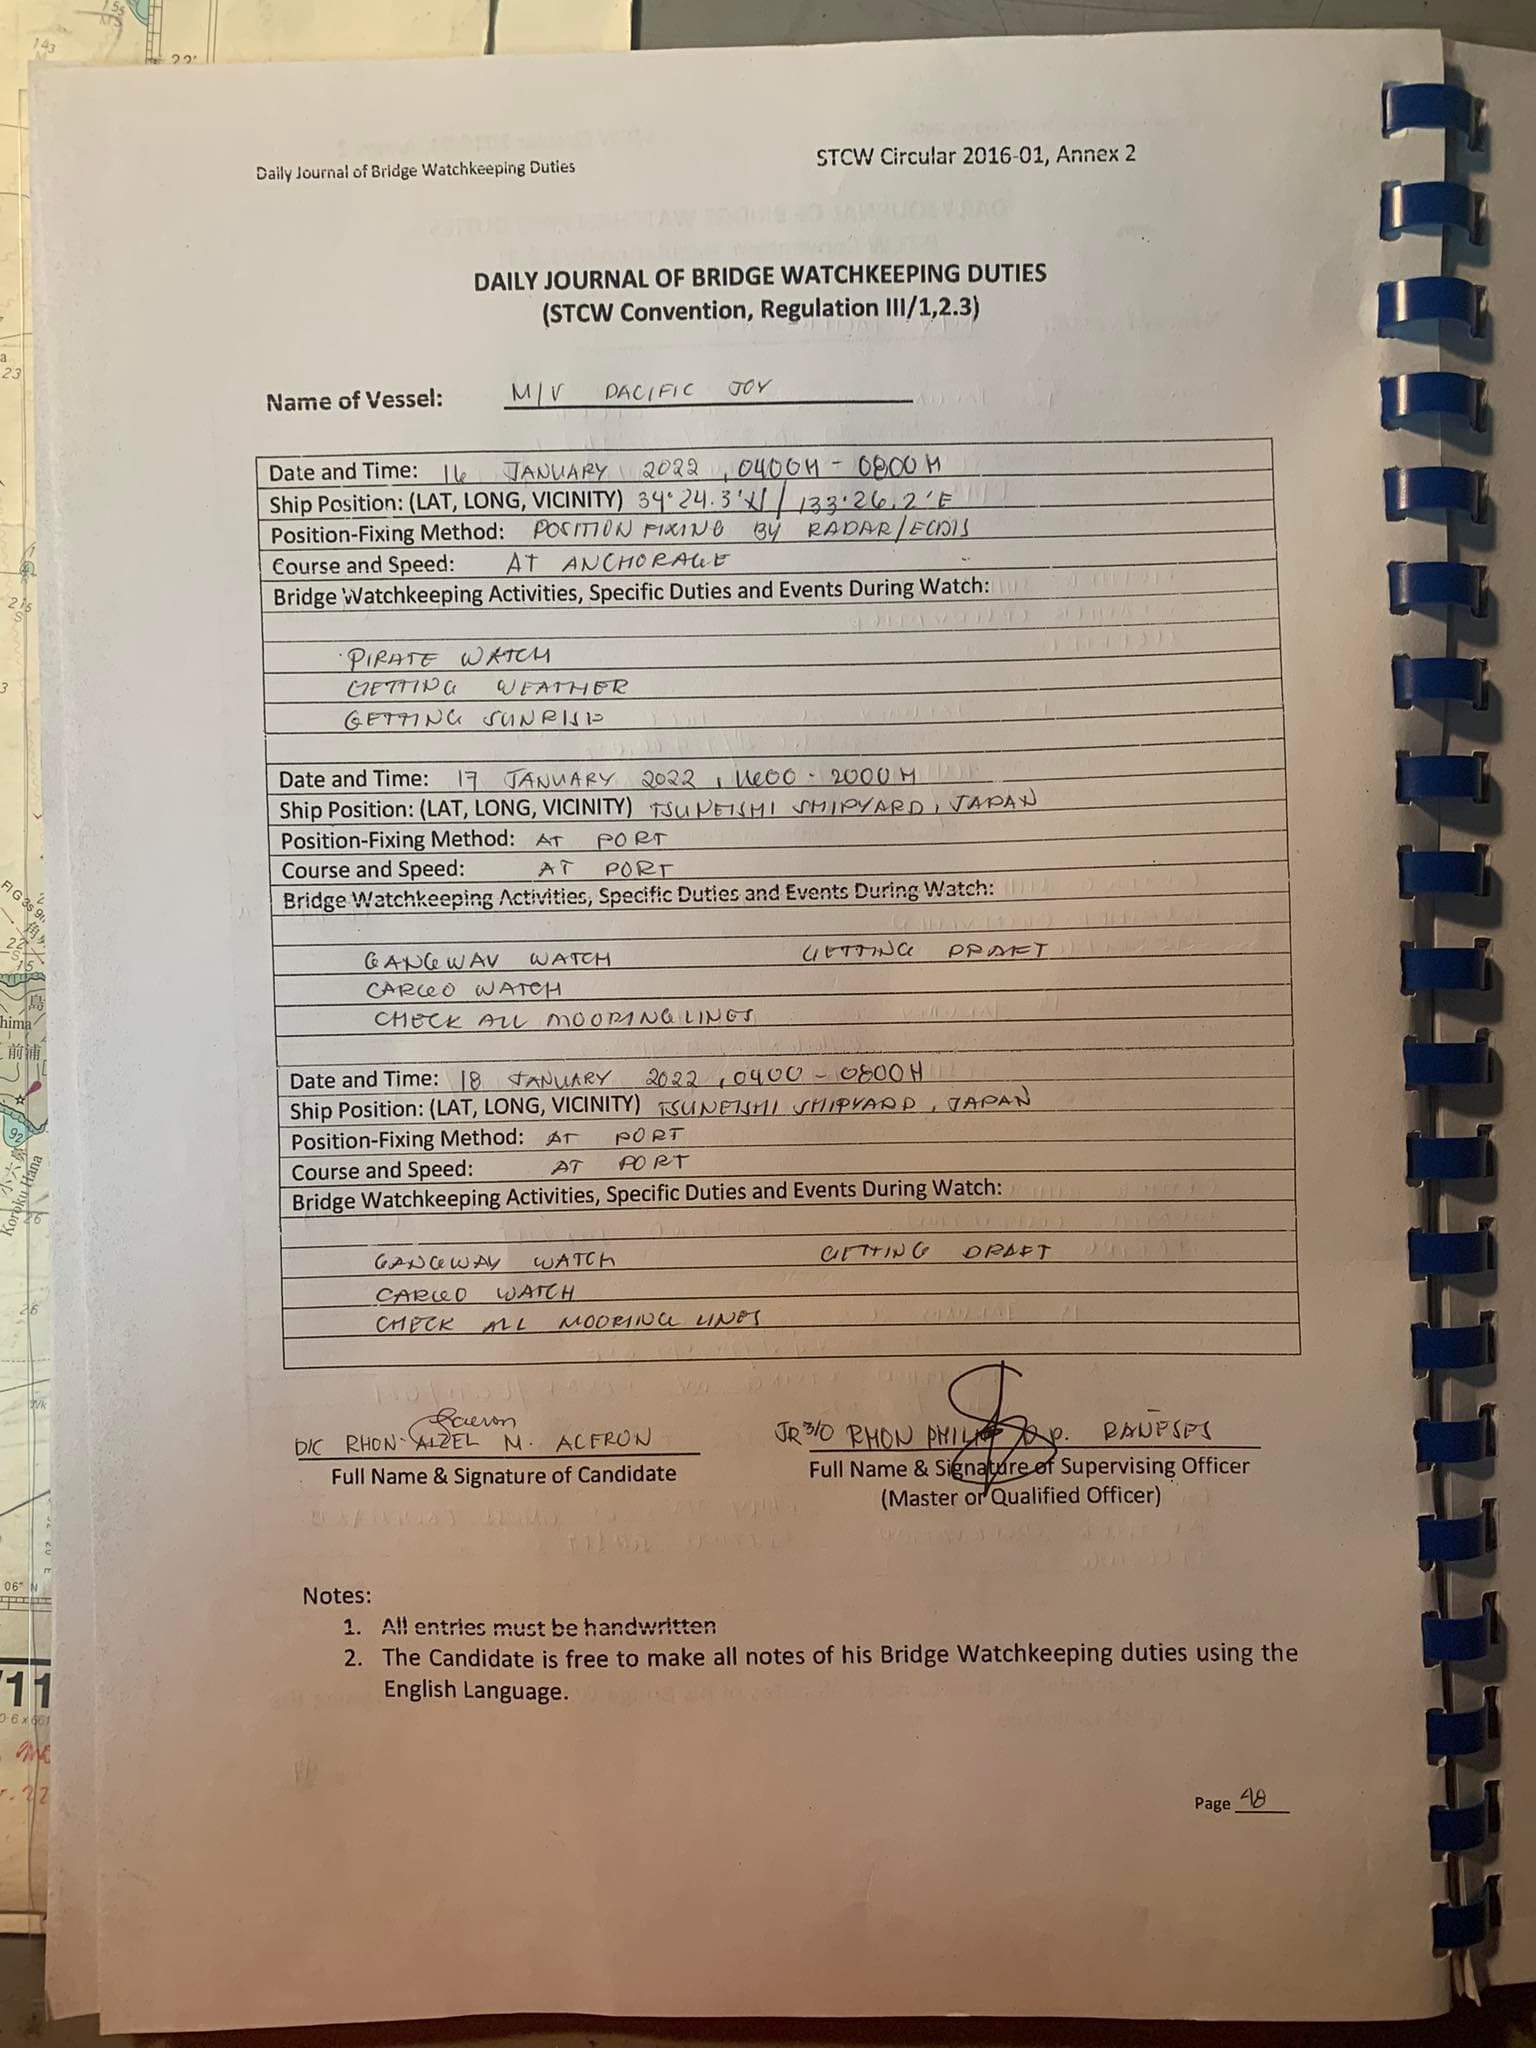 Daily Journal of Bridge Watchkeeping Duties
STCW Circular 2016-01, Annex 2
DAILY JOURNAL OF BRIDGE WATCHKEEPING DUTIES
(STCW Convention, Regulation III/1,2.3)
Name of Vessel: M/V PACIFIC JOY
Date and Time: 16 JANUARY 2022, 0400H - 0800H
Ship Position: (LAT, LONG, VICINITY) 34°24.3'N / 133°26.2'E
Position-Fixing Method: POSITION FIXING BY RADAR/ECDIS
Course and Speed: AT ANCHORAGE
Bridge Watchkeeping Activities, Specific Duties and Events During Watch:
PIRATE WATCH
GETTING WEATHER
GETTING SUNRISE
Date and Time: 17 JANUARY 2022, 1600 - 2000H
Ship Position: (LAT, LONG, VICINITY) TSUNEISHI SHIPYARD, JAPAN
Position-Fixing Method: AT PORT
Course and Speed: AT PORT
Bridge Watchkeeping Activities, Specific Duties and Events During Watch:
GANGWAY WATCH GETTING DRAFT
CARGO WATCH
CHECK ALL MOORING LINES
Date and Time: 18 JANUARY 2022, 0400 - 0800H
Ship Position: (LAT, LONG, VICINITY) TSUNEISHI SHIPYARD, JAPAN
Position-Fixing Method: AT PORT
Course and Speed: AT PORT
Bridge Watchkeeping Activities, Specific Duties and Events During Watch:
GANGWAY WATCH GETTING DRAFT
CARGO WATCH
CHECK ALL MOORING LINES
D/C RHON-AIZEL M. ACERON
JR 3/O RHON PHILIP P. RANESES
Full Name & Signature of Candidate
Full Name & Signature of Supervising Officer
(Master or Qualified Officer)
Notes:
1. All entries must be handwritten
2. The Candidate is free to make all notes of his Bridge Watchkeeping duties using the
English Language.
Page 48
143
22'
23
215
hima
前浦
島
92
Koroku Hana
26
26
06"
N